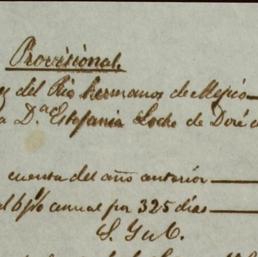 Provisional.
del Rio hermanos de Mejico
a D.ª Estefania Loche de Doré
cuenta del año anterior
al 6 p% annual por 325 dias
S. Y u O.